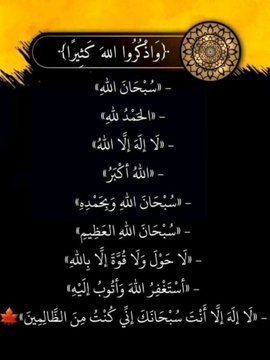 ﴿وَاذْكُرُوا اللهَ كَثِيرًا﴾
- «سُبْحَانَ اللهِ»
- «الحَمْدُ للهِ»
- «لَا إِلَهَ إِلَّا اللهُ»
- «اللهُ أَكْبَرُ»
- «سُبْحَانَ اللهِ وَبِحَمْدِهِ»
- «سُبْحَانَ اللهِ العَظِيمِ»
- «لَا حَوْلَ وَلَا قُوَّةَ إِلَّا بِاللهِ»
- «أَسْتَغْفِرُ اللهَ وَأَتُوبُ إِلَيْهِ»
- «لَا إِلَهَ إِلَّا أَنْتَ سُبْحَانَكَ إِنِّي كُنْتُ مِنَ الظَّالِمِينَ»